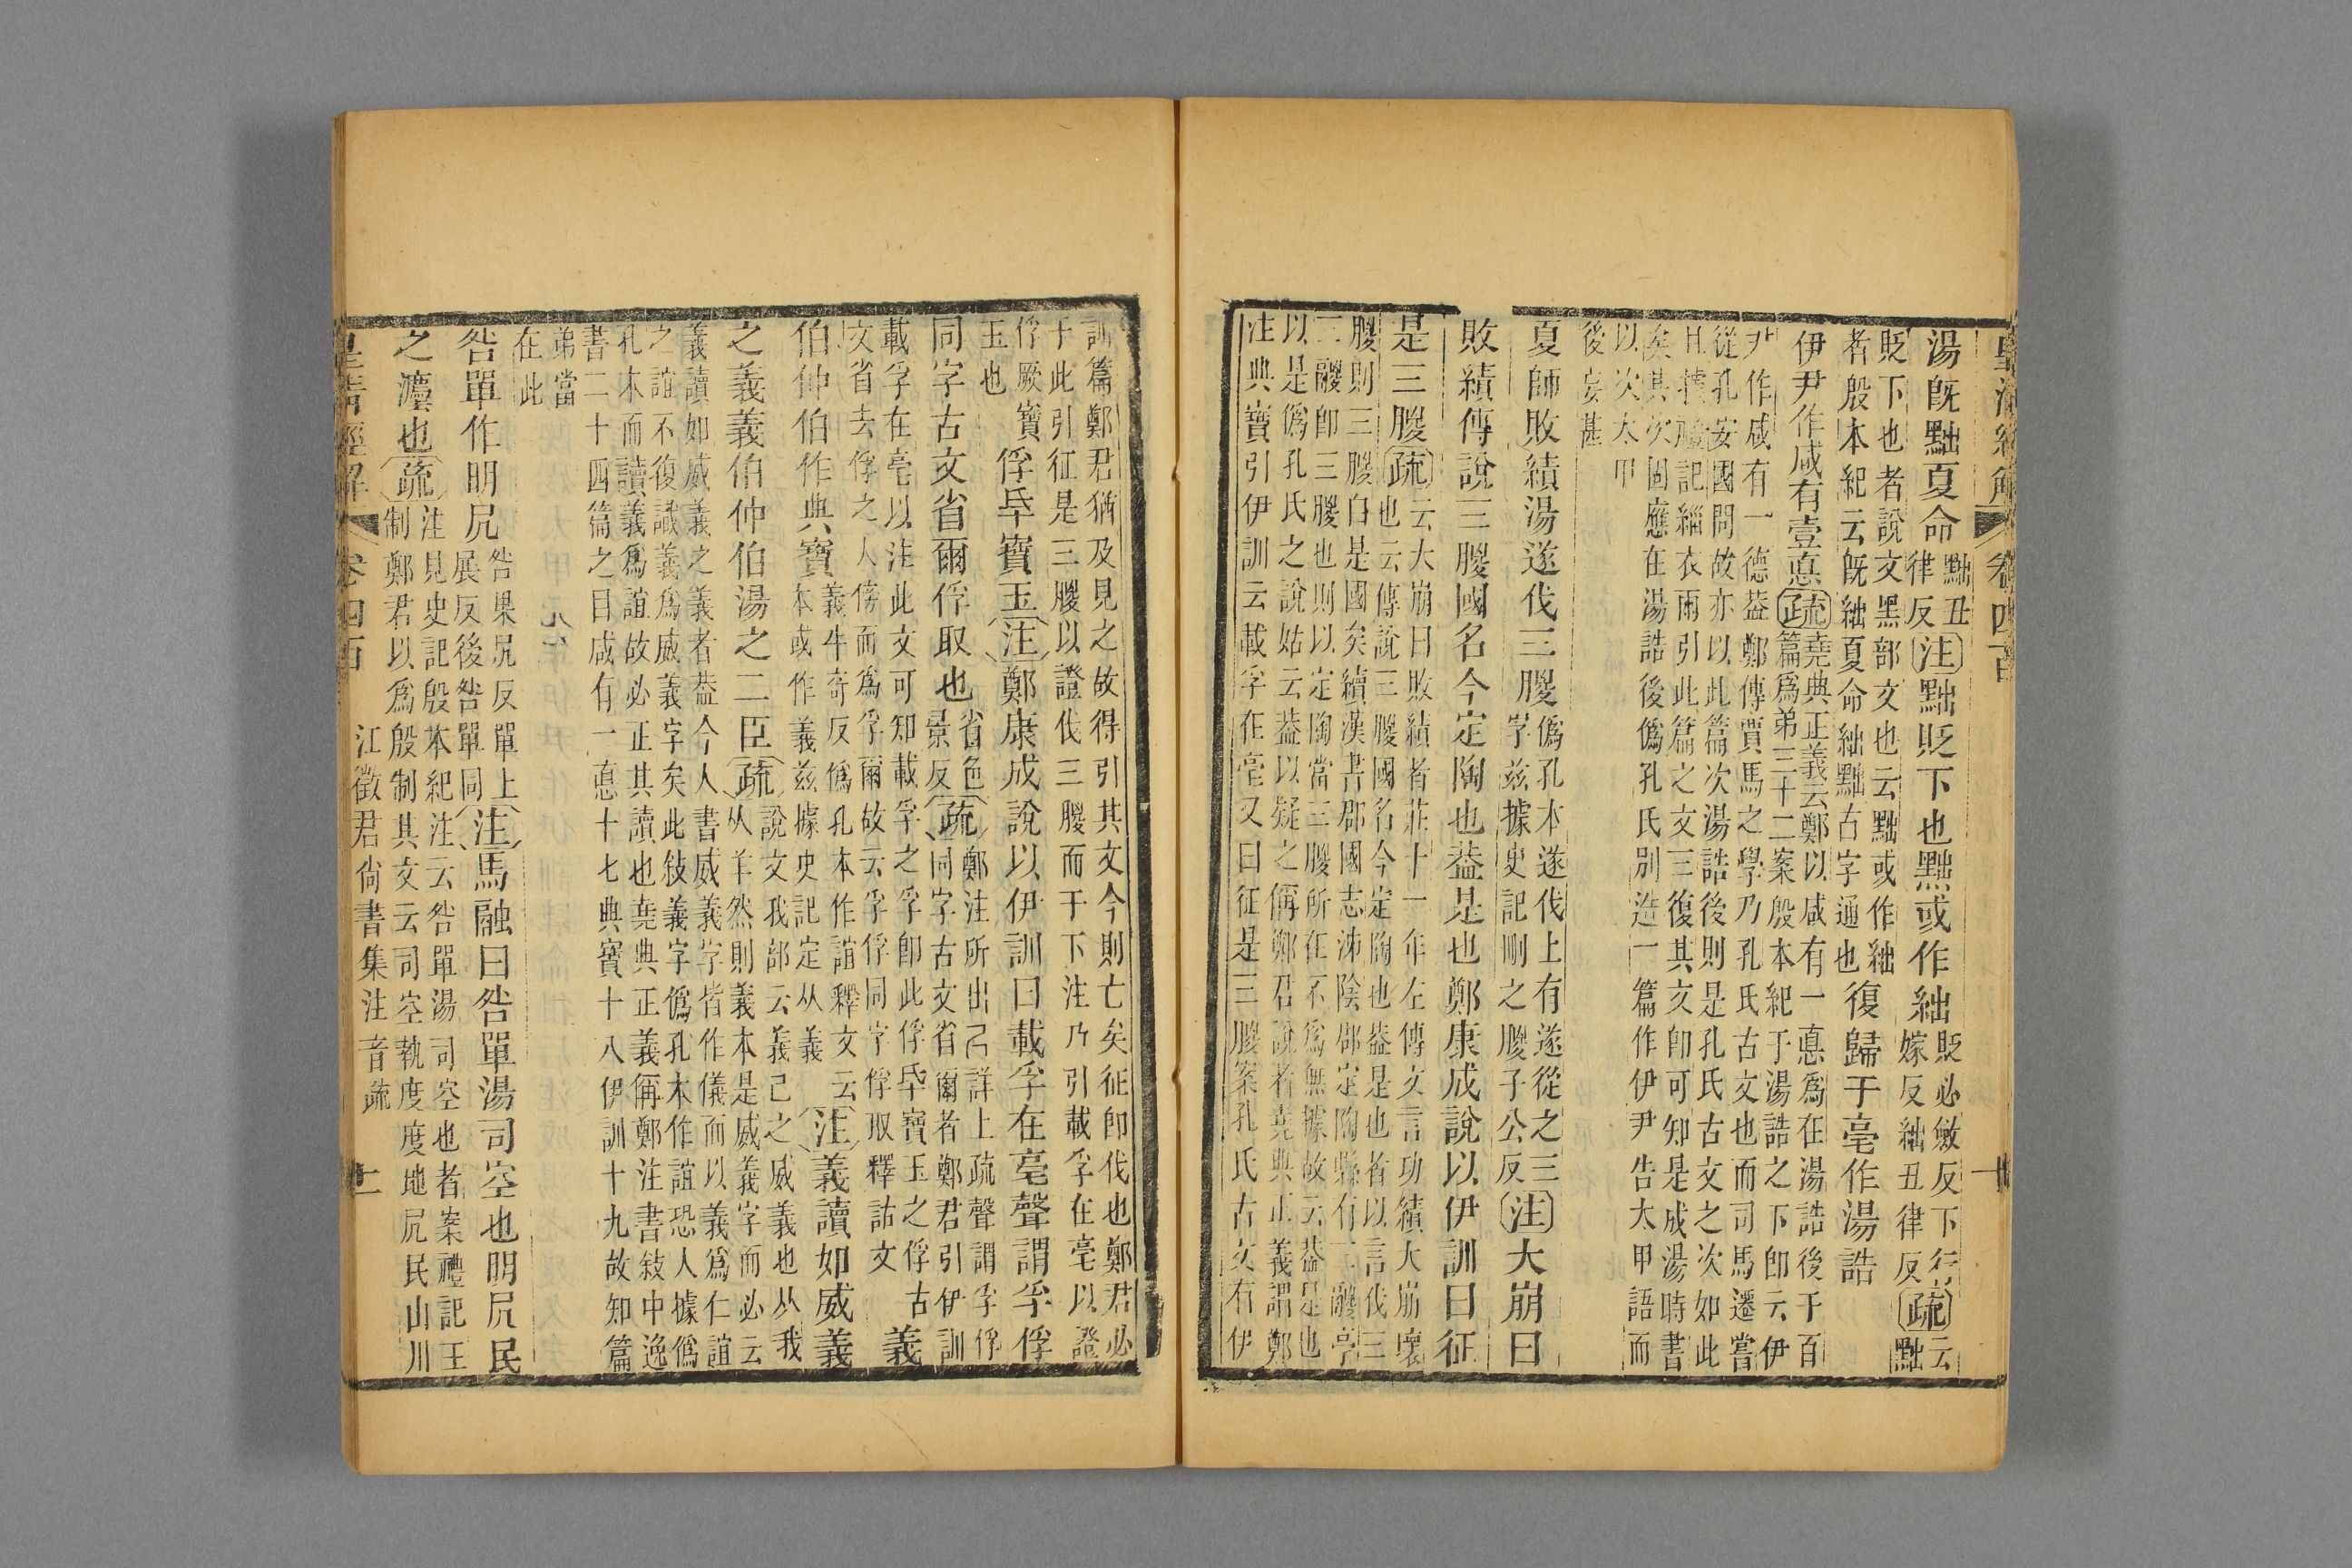 湯既黜夏命
黜丑
律反
注
黜貶下也黜或作絀
貶必斂反下行
嫁反絀丑律反
疏
云黜
貶下也者說文黑部文也云黜或作絀
者殷本紀云旣絀夏命絀黜古字通也
復歸于亳作湯誥
伊尹作咸有壹悳
疏
堯典正義云鄭以咸有一悳爲在湯誥後于百
篇爲弟三十二案殷本紀于湯誥之下卽云伊
尹作咸有一德葢鄭傳賈馬之學乃孔氏古文也而司馬遷嘗
從孔安國問故亦以此篇次湯誥後則是孔氏古文之次如此
且據禮記緇衣兩引此篇之文三復其文卽可知是成湯時書
矣其次固應在湯誥後僞孔氏別造一篇作伊尹告大甲語而
以次大甲
後妄甚
夏師敗績湯遂伐三朡
僞孔本遂伐上有遂從之三
字茲據史記刪之朡子公反
注
大崩曰
敗績傳說三朡國名今定陶也葢是也鄭康成說以伊訓曰征
是三朡
疏
云大崩曰敗績者莊十一年左傳文言功績大崩壞
也云傳說三朡國名今定陶也葢是也者以言伐三
朡則三朡自是國矣續漢書郡國志沛陰郡定陶縣有三鬷亭
三鬷卽三朡也則以定陶當三朡所在不爲無據故云葢是也
以是僞孔氏之說姑云葢以疑之偁鄭君說者堯典正義謂鄭
注典寶引伊訓云載孚在亳又曰征是三朡案孔氏古文有伊
訓篇鄭君猶及見之故得引其文今則亡矣征卽伐也鄭君必
于此引征是三朡以證伐三朡而于下注乃引載孚在亳以證
俘厥寶
玉也
俘厥寶玉
注
鄭康成說以伊訓曰載孚在亳聲謂孚俘
同字古文省爾俘取也
省色
景反
疏
鄭注所出已詳上疏聲謂孚俘
同字古文省爾者鄭君引伊訓
載孚在亳以注此文可知載孚之孚卽此俘厥寶玉之俘古
文省去俘之人傍而爲孚爾故云孚俘同字俘取釋詁文
義
伯仲伯作典寶
義牛奇反僞孔本作誼釋文云
本或作義茲據史記定从義
注
義讀如威義
之義義伯仲伯湯之二臣
疏
說文我部云義己之威義也从我
从羊然則義本是威義字而必云
義讀如威義之義者葢今人書威義字皆作儀而以義爲仁誼
之誼不復識義爲威義字矣此敍義字僞孔本作誼恐人據僞
孔本而讀義爲誼故必正其讀也堯典正義偁鄭注書敍中逸
書二十四篇之目咸有一悳十七典寶十八伊訓十九故知篇
弟當
在此
咎單作明凥
咎杲凥反單上
展反後咎單同
注
馬融曰咎單湯司空也明凥民
之灋也
疏
注見史記殷本紀注云咎單湯司空也者案禮記王
制鄭君以爲殷制其文云司空執度度地凥民山川
皇清經解
卷四百
江徵君尙書集注音疏
十一